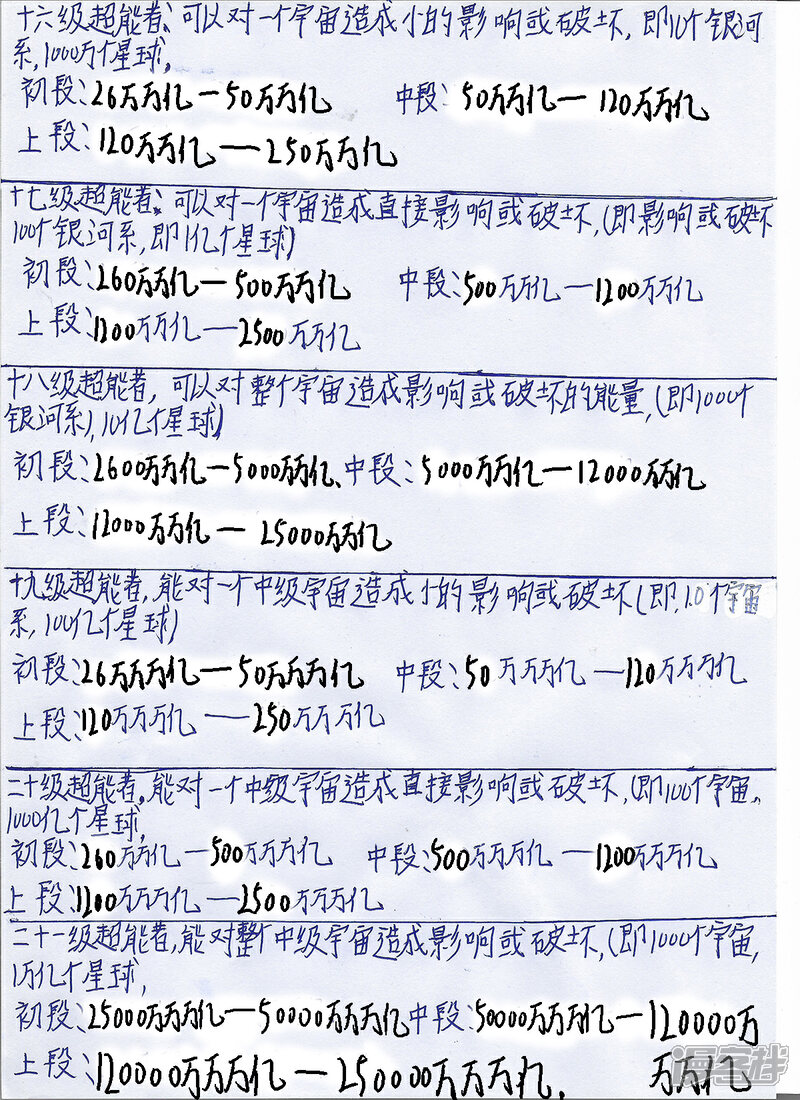 十六级超能者、可以对一个宇宙造成小的影响或破坏，即10个银河
系，1000万个星球，
初段：26万万亿—50万万亿 中段：50万万亿—120万万亿
上段：120万万亿—250万万亿
十七级超能者：可以对一个宇宙造成直接影响或破坏，(即影响或破坏
100个银河系，即1亿个星球)
初段：260万万亿—500万万亿 中段：500万万亿—1200万万亿
上段：1200万万亿—2500万万亿
十八级超能者，可以对整个宇宙造成影响或破坏的能量，(即1000个
银河系)，10亿个星球)
初段：2600万万亿—5000万万亿、中段：5000万万亿—12000万万亿
上段：12000万万亿—25000万万亿
十九级超能者，能对一个中级宇宙造成小的影响或破坏(即，10个宇宙
系，100亿个星球)
初段：26万万万亿—50万万万亿 中段：50万万万亿—120万万万亿
上段：120万万万亿—250万万万亿
二十级超能者，能对一个中级宇宙造成直接影响或破坏，(即100个宇宙，
1000亿个星球，
初段：260万万万亿—500万万万亿 中段：500万万万亿—1200万万万亿
上段：1200万万万亿—2500万万万亿
二十一级超能者，能对整个中级宇宙造成影响或破坏，(即1000个宇宙，
1万亿个星球，
初段：25000万万万亿—50000万万万亿 中段：50000万万万亿—120000万
上段：120000万万万亿—250000万万万亿． 万万亿